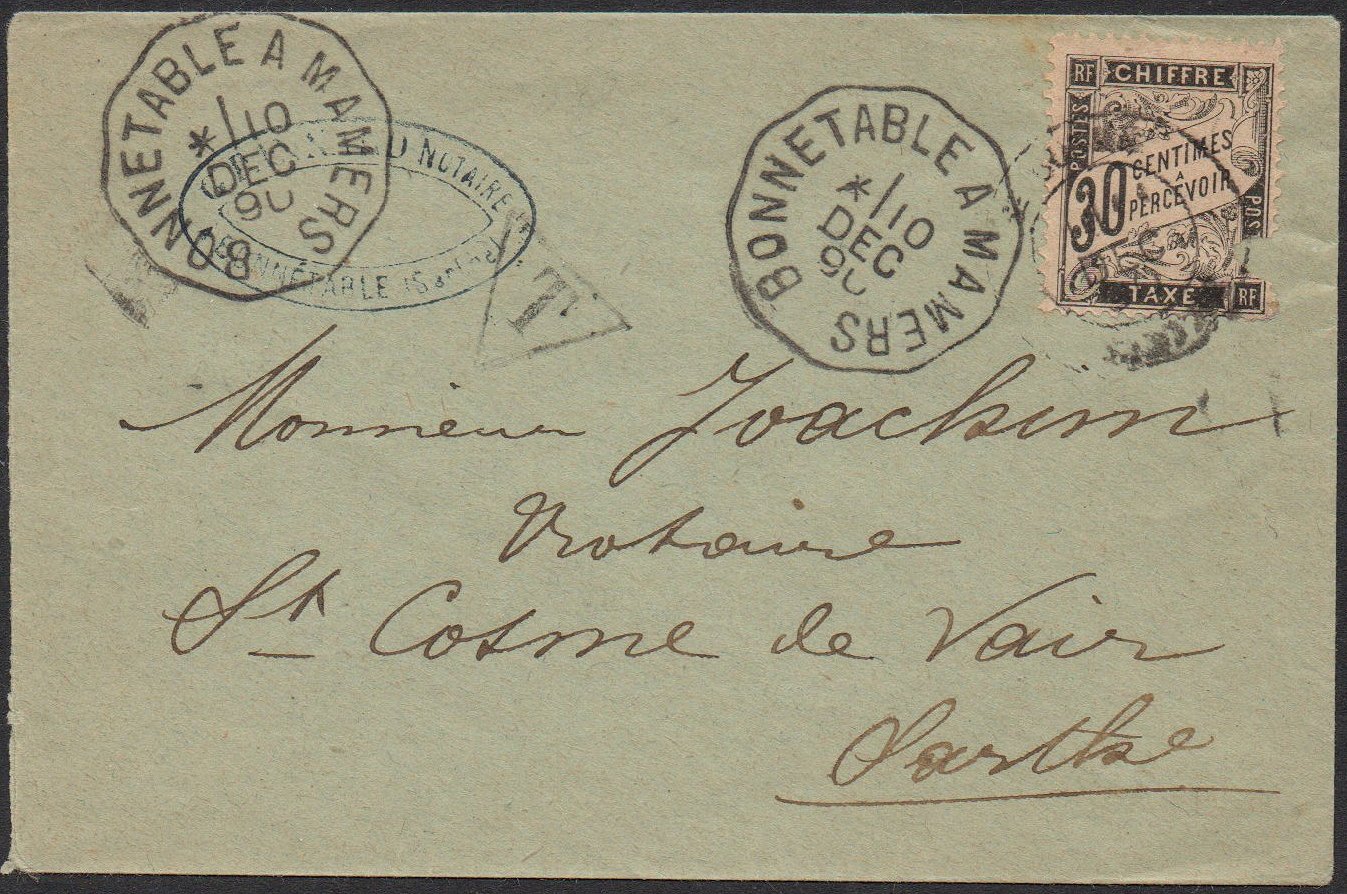 BONNETABLE A MAMERS 80
1/10
DEC
90
NOTAIRE
BONNÉTABLE (Sarthe)
T
BONNETABLE A MAMERS
1/10
DEC
9
RF CHIFFRE RF
POSTES
30 CENTIMES
A
PERCEVOIR
POS
TAXE RF
Monsieur Joachim
Notaire
St Cosme de Vair
Sarthe